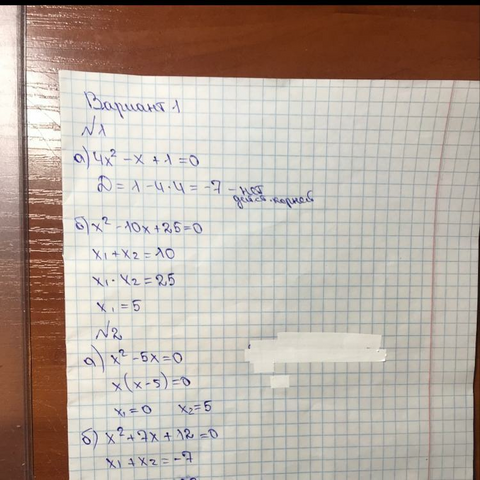 Вариант 1
№1
а) 4x² - x + 1 = 0
D = 1 - 4 · 4 = -7 - нет
действ. корней
б) x² - 10x + 25 = 0
x₁ + x₂ = 10
x₁ · x₂ = 25
x₁ = 5
№2
а) x² - 5x = 0
x(x - 5) = 0
x₁ = 0 x₂ = 5
б) x² + 7x + 12 = 0
x₁ + x₂ = -7